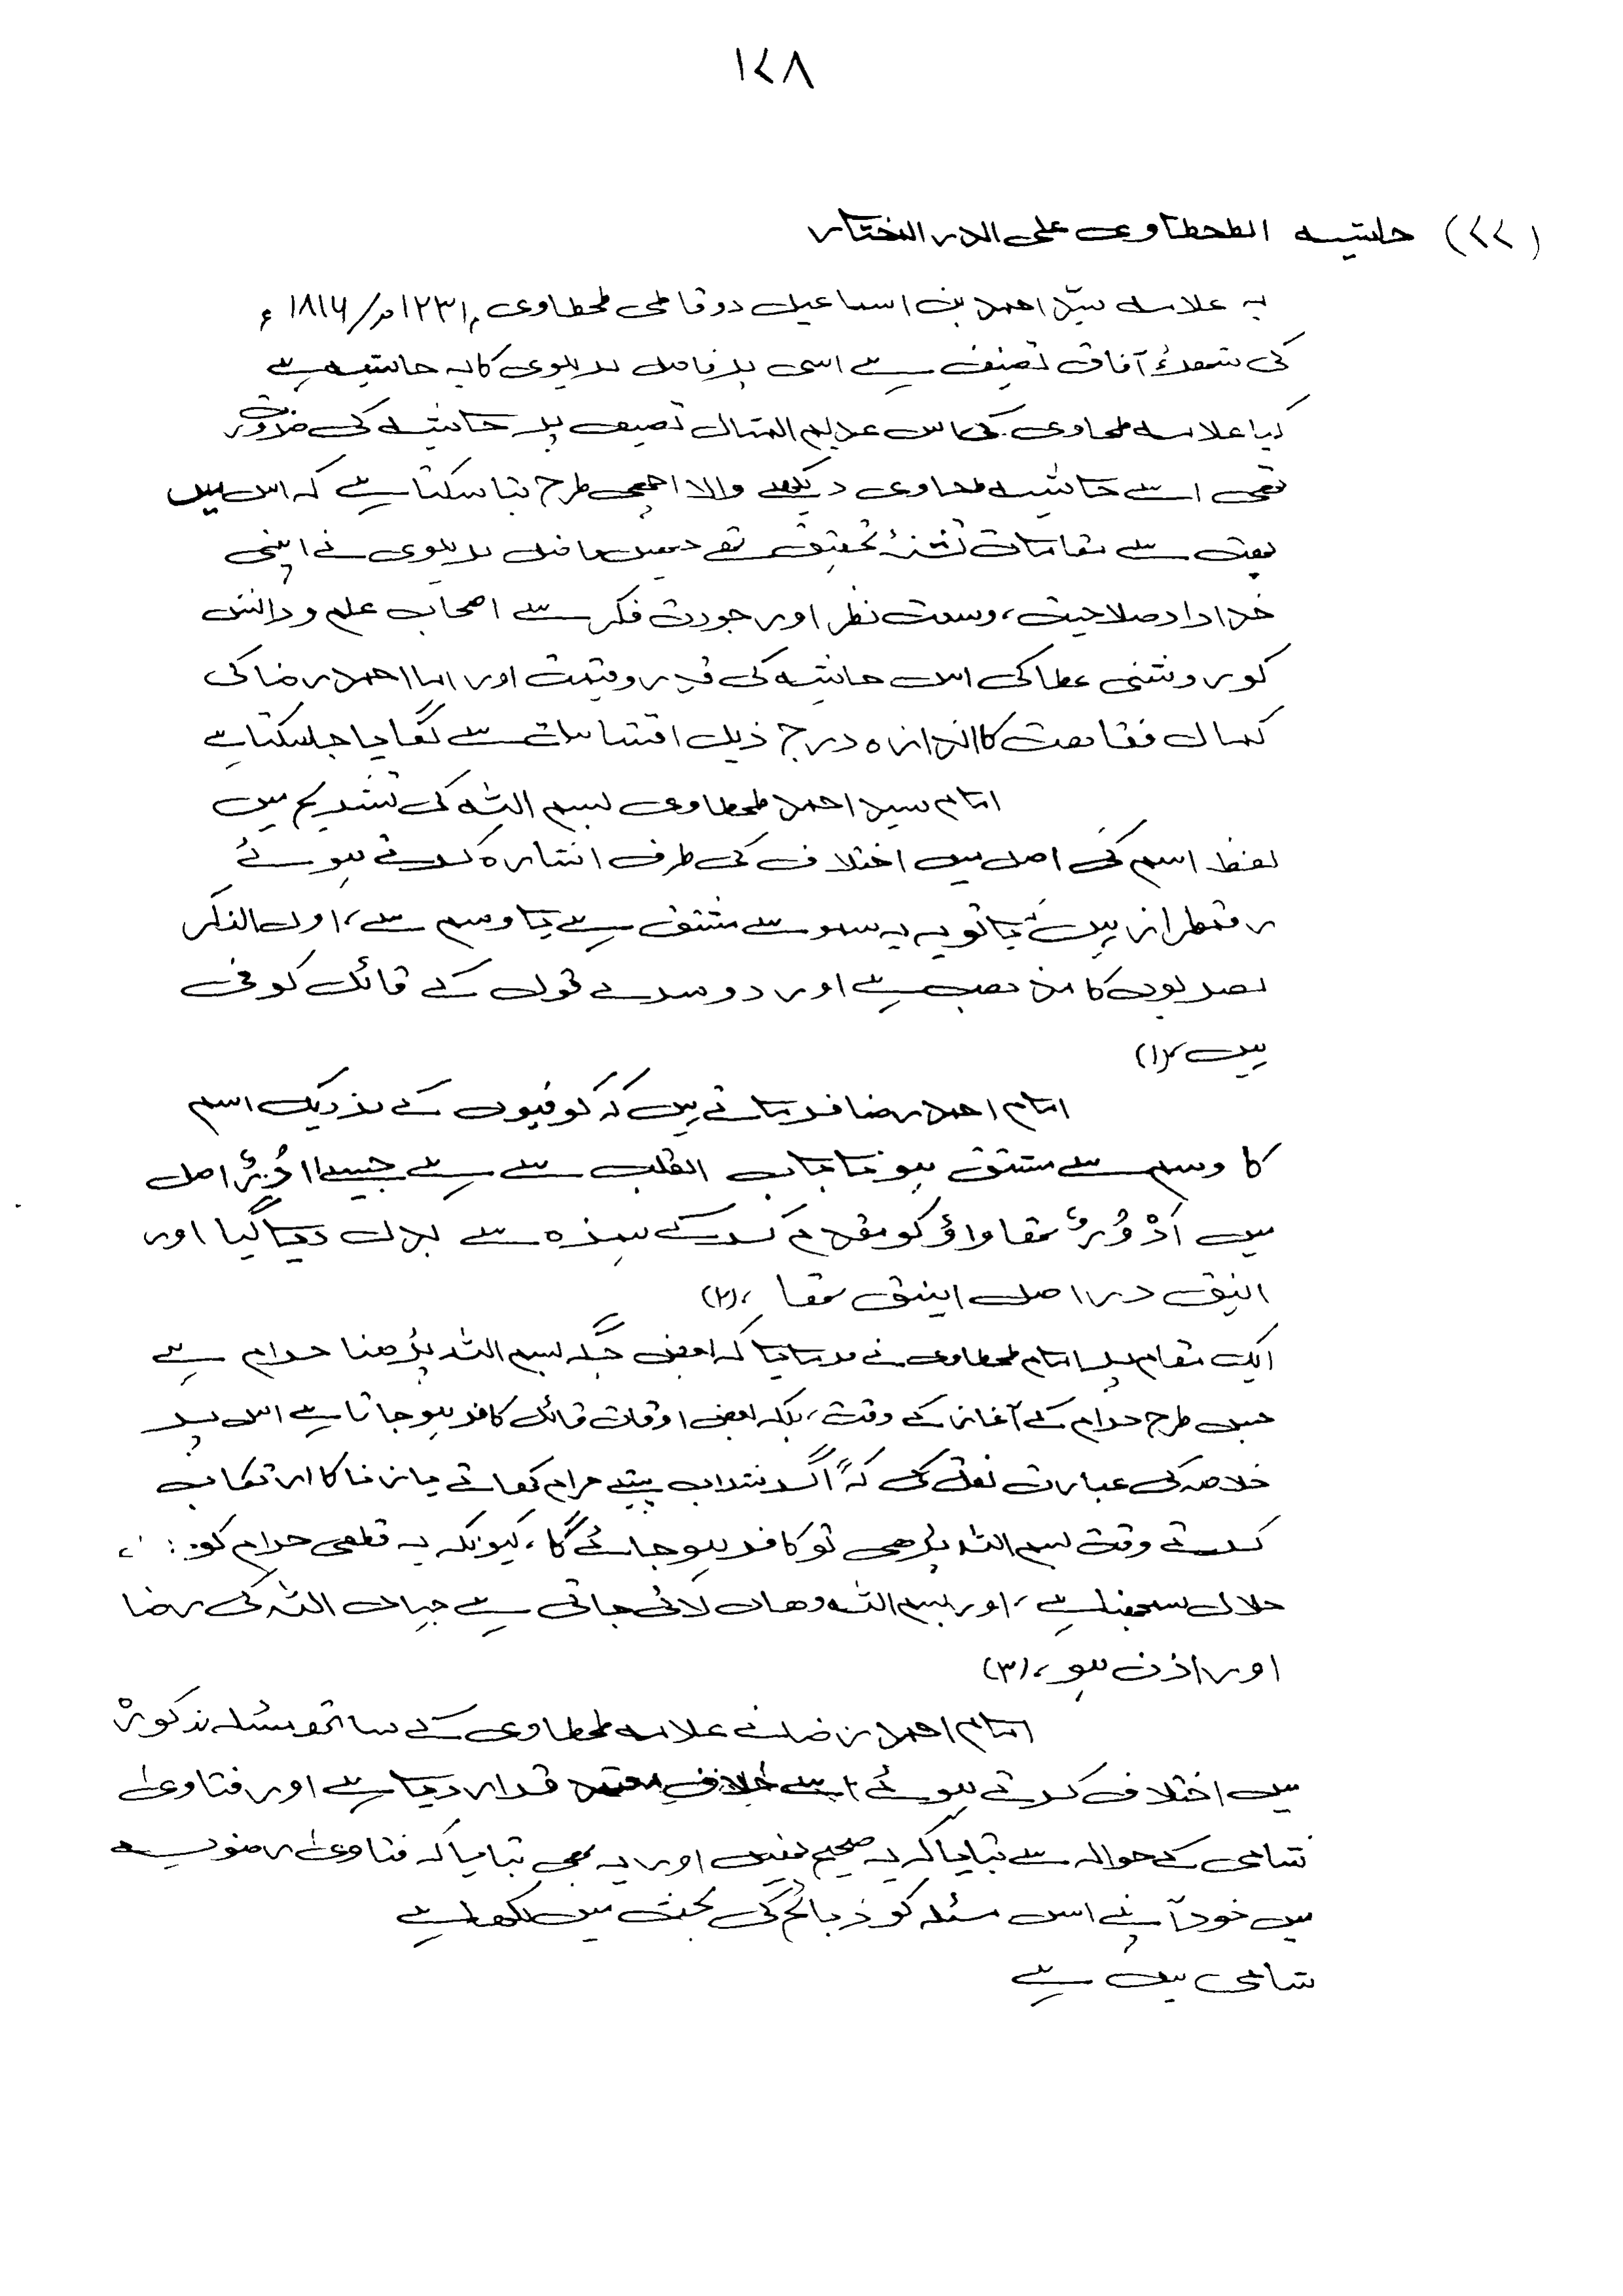 ۱۴۸
(۲۲) حاشیہ الطحطاوی علی الدر المختار
یہ علامہ سیّد احمد بن اسماعیل دوقاطی طحطاوی م ۱۲۳۱ھ/۱۸۱۶ء
کی شہرۂ آفاق تصنیف ہے اسی پر فاضل بریلوی کا یہ حاشیہ ہے
کیا علامہ طحاوی کی اس عدیم المثال تصیف پر حاشیہ کی ضرورت
تھی اسے حاشیہ طحاوی دیکھنے والا اچھی طرح بتا سکتا ہے کہ اس میں
بہت سے مقامات تشنۂ تحقیق تھے جہیں فاضل بریلوی نے اپنی
خداداد صلاحیت، وسعت نظر اور جودت فکر سے اصحاب علم و دانش
کو روشنی عطا کی اس حاشیہ کی قدر و قیمت اور امام احمد رضا کی
کمال فقاہت کا اندازہ درج ذیل اقتباسات سے لگایا جاسکتا ہے
امام سید احمد طحطاوی بسم اللہ کی تشریح میں
لفظ اسم کی اصل میں اختلاف کی طرف اشارہ کرتے ہوئے
رقمطراز ہیں یا تو یہ یہ سمو سے مشتق ہے یا وسم سے، اول الذکر
بصریوں کا مذہب ہے اور دوسرے قول کے قائل کوفی
ہیں، (۱)
امام احمد رضا فرماتے ہیں کہ کوفیوں کے نزدیک اسم
کا وسم سے مشتق ہونا باب القلب سے ہے جیسے ادُرٌ اصل
میں اَدْوُرٌ تھا واؤ کو مقدم کرکے ہمزہ سے بدل دیا گیا اور
انیق دراصل اینق تھا، (۲)
ایک مقام پر امام طحطاوی نے فرمایا کہ بعض جگہ بسم اللہ پڑھنا حرام ہے
جس طرح حرام کے آغاز کے وقت، بلکہ بعض اوقات قائل کافر ہو جاتا ہے اس پر
خلاصہ کی عبارت نقل کی کہ "اگر شراب پیتے حرام کھاتے یا زنا کا ارتکاب
کرتے وقت بسم اللہ پڑھی تو کافر ہو جائے گا، کیونکہ یہ قطعی حرام کو
حلال سمجھنا ہے، اور بسم اللہ وھاں لائی جاتی ہے جہاں اللہ کی رضا
اور اذن ہو، (۳)
امام احمد رضا نے علامہ طحطاوی کے ساتھ مسئلہ مذکورہ
میں اختلاف کرتے ہوئے اسے خلاف معتمد قرار دیا ہے اور فتاویٰ
شامی کے حوالہ سے بتایا کہ یہ صحیح نہیں اور یہ بھی بتایا کہ فتاویٰ رضویہ
میں خود آپنے اس مسئلہ کو ذبائح کی بحث میں لکھا ہے
شامی میں ہے